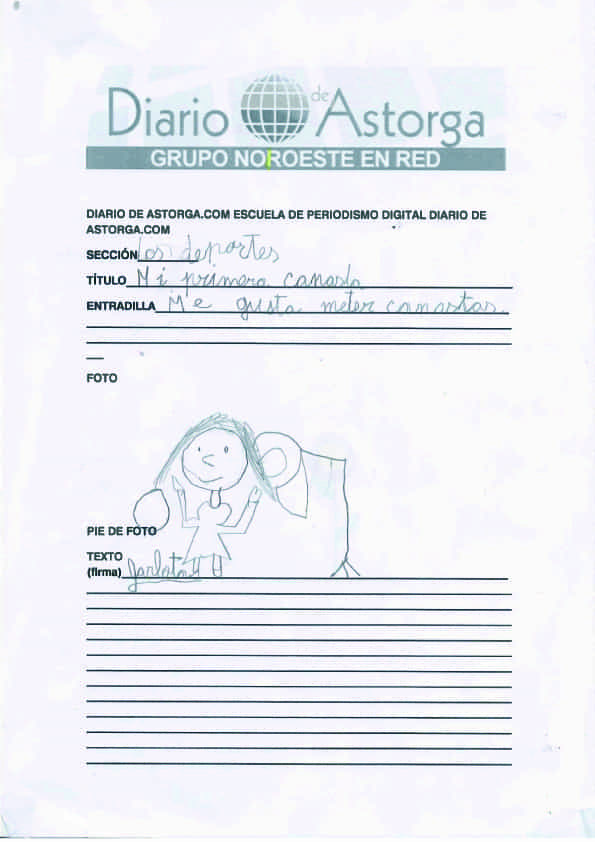 Diario de Astorga
GRUPO NOROESTE EN RED
DIARIO DE ASTORGA.COM ESCUELA DE PERIODISMO DIGITAL DIARIO DE
ASTORGA.COM
SECCIÓN Los deportes
TÍTULO Mi primera canasta
ENTRADILLA Me gusta meter canastas.
FOTO
PIE DE FOTO
TEXTO
(firma)